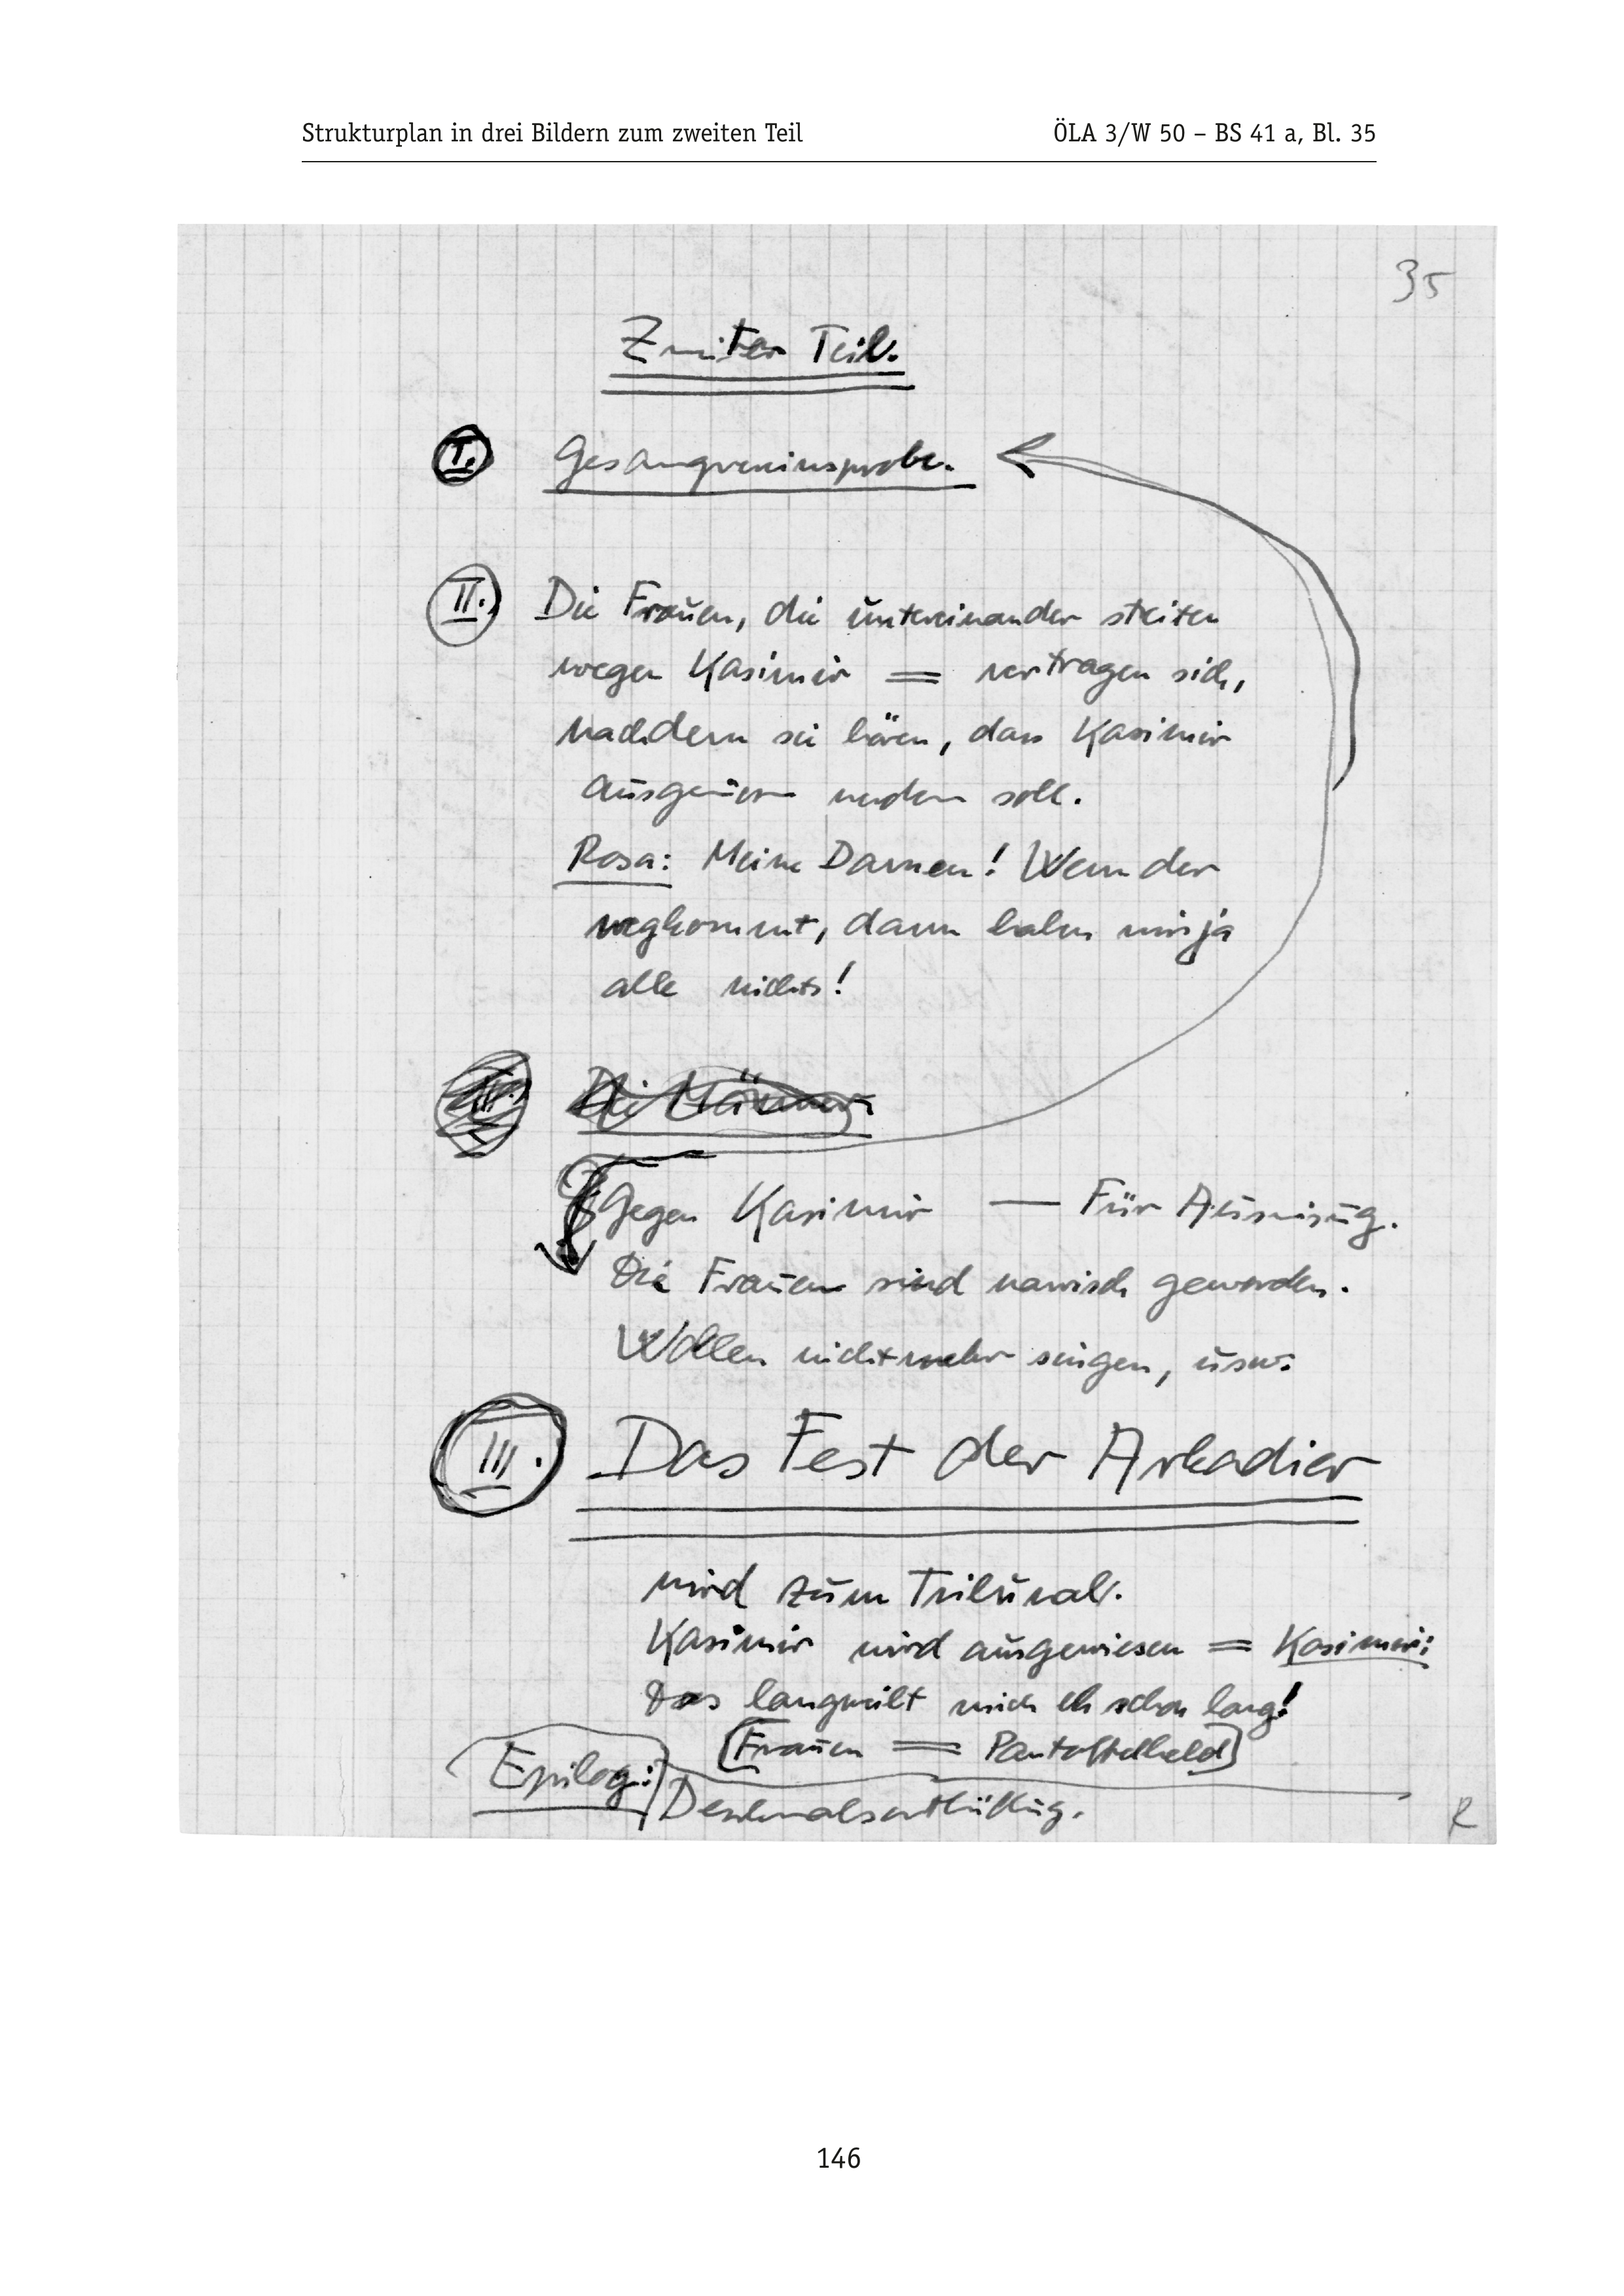 Strukturplan in drei Bildern zum zweiten Teil ÖLA 3/W 50 – BS 41 a, Bl. 35
35
Zweiter Teil.
I. Gesangvereinsprobe.
II. Die Frauen, die untereinander streiten
wegen Kasimir = vertragen sich,
nachdem sie hören, dass Kasimir
ausgewiesen werden soll.
Rosa: Meine Damen! Wenn der
wegkommt, dann haben wir ja
alle nichts!
III. Die Männer
Gegen Kasimir — Für Ausweisung.
Die Frauen sind narrisch geworden.
Wollen nicht mehr singen, usw.
III. Das Fest der Arkadier
wird zum Tribunal.
Kasimir wird ausgewiesen = Kasimir:
Das langweilt mich eh schon lang!
(Frauen = Pantoffelheld)
Epilog: Denkmalsenthüllung.
R
146